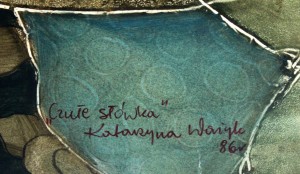 „Czułe słówka"
Katarzyna
86r